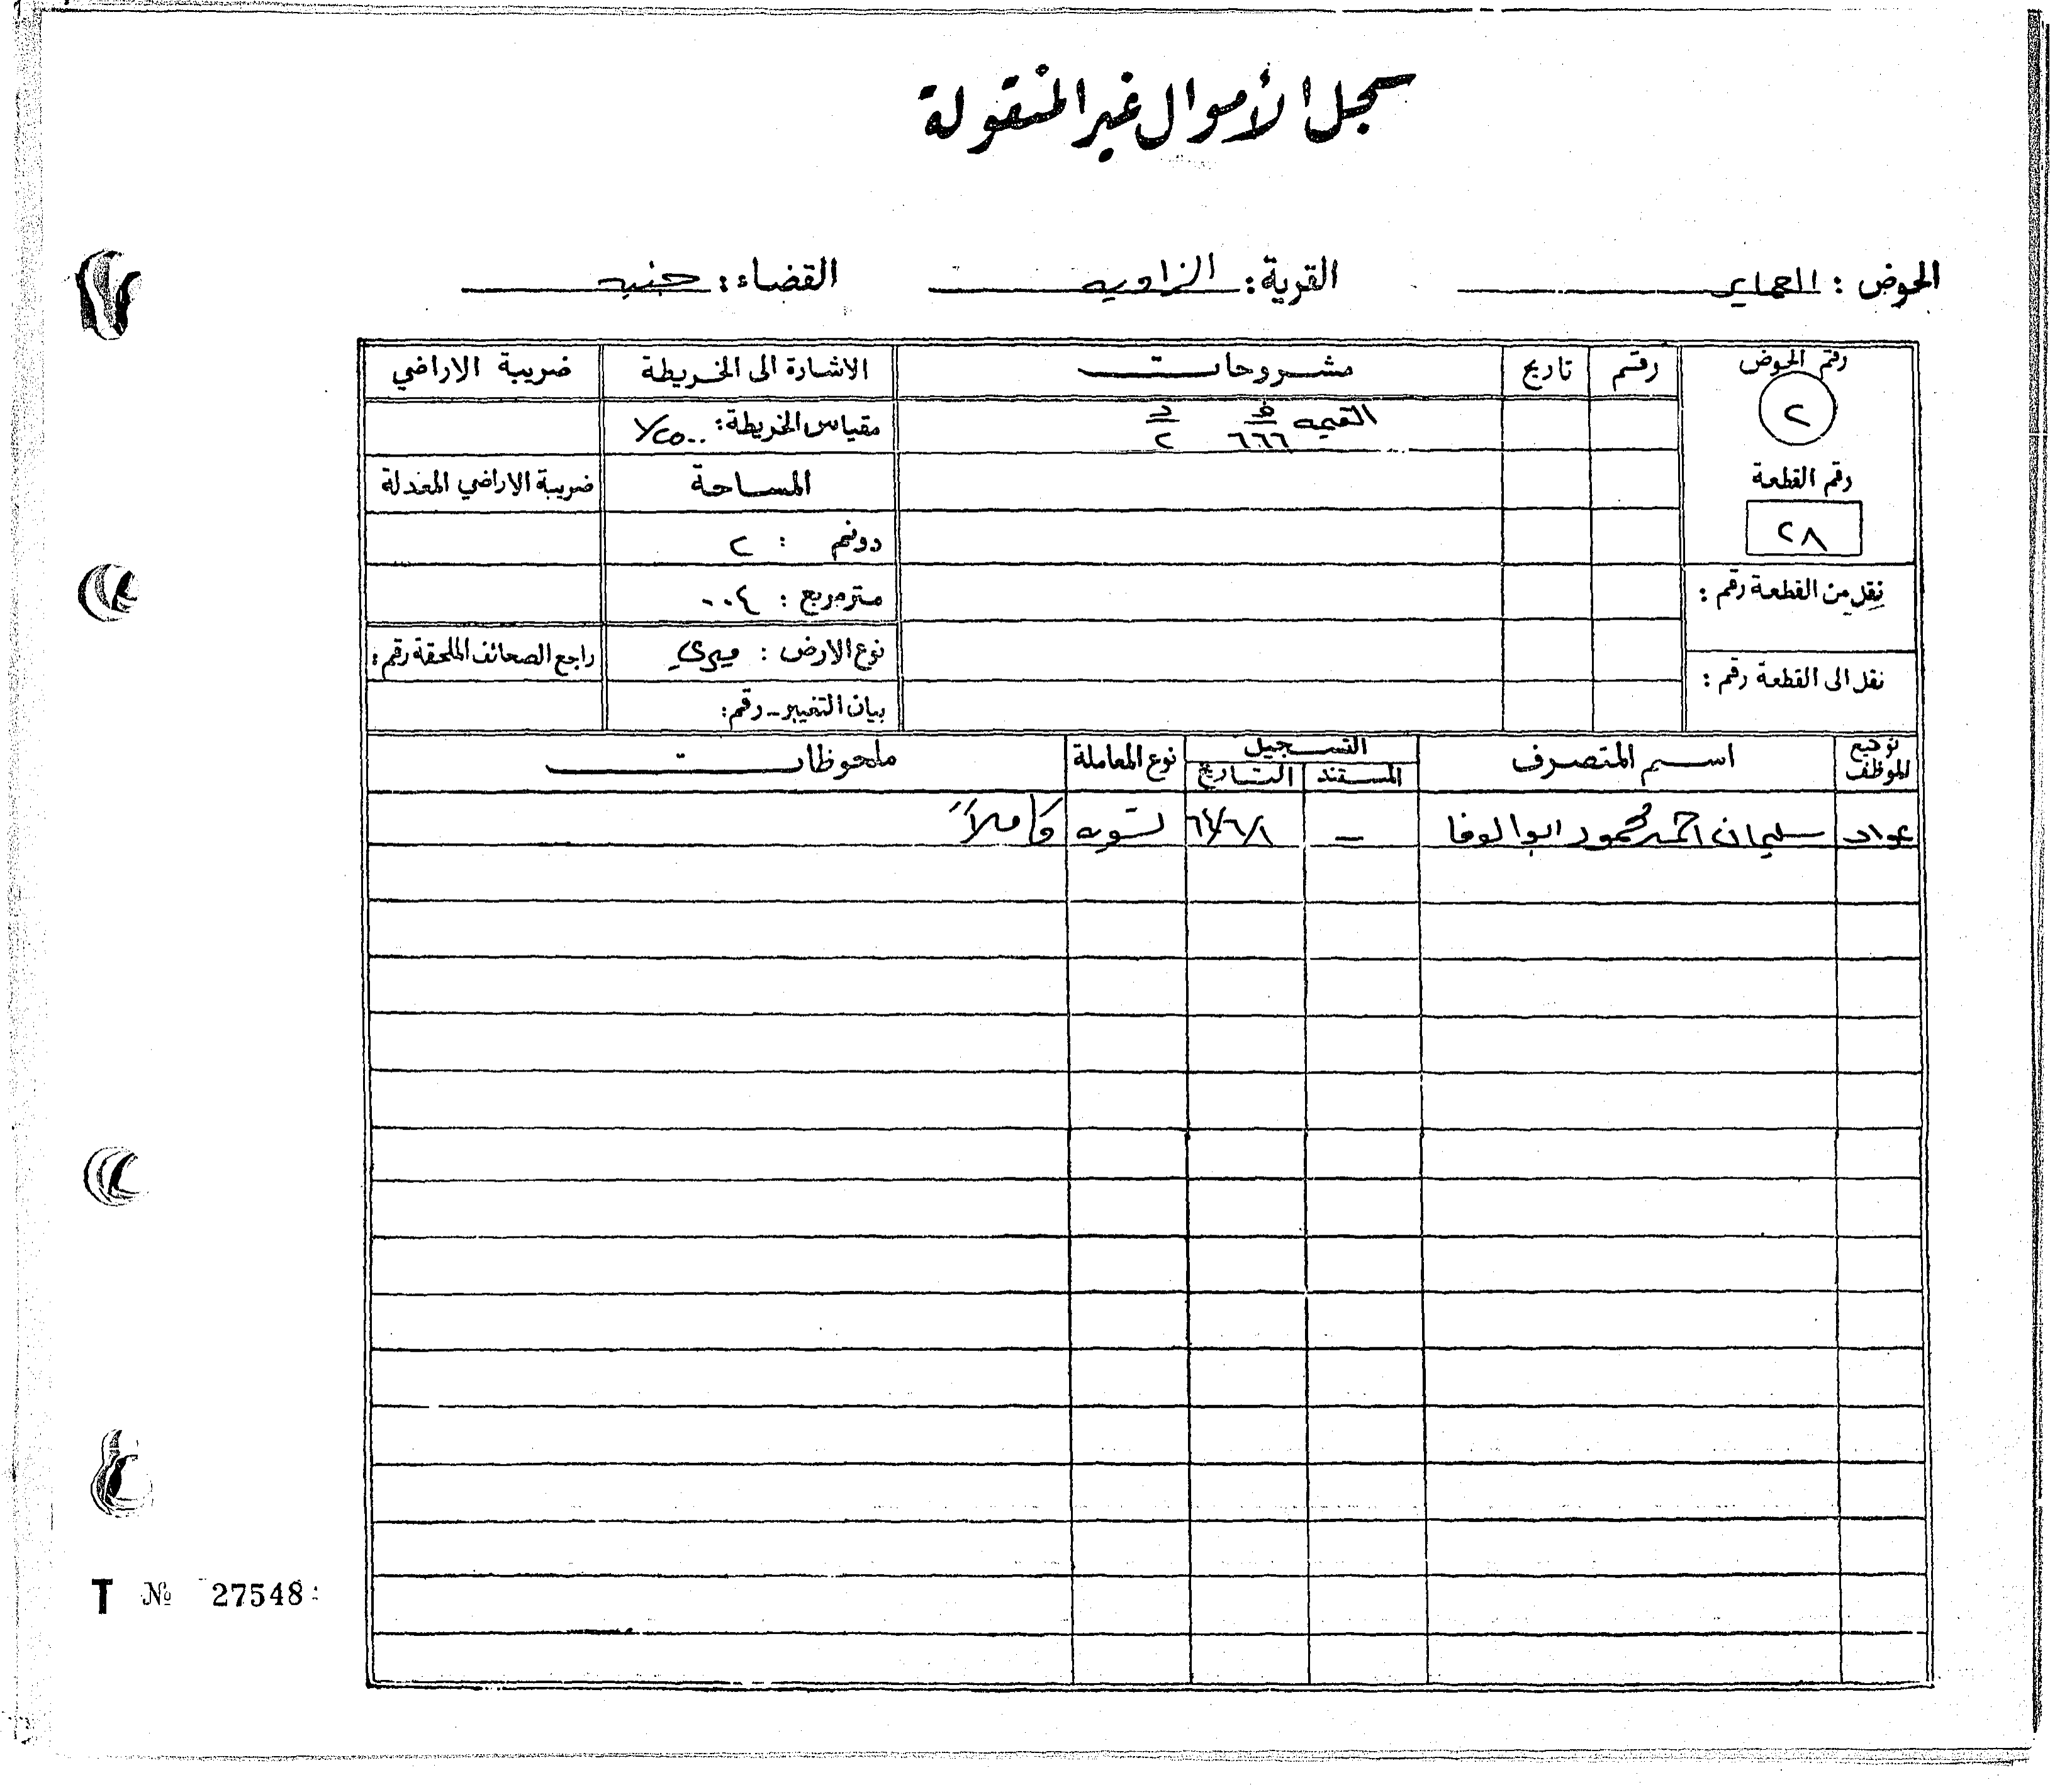 سجل الأموال غير المنقولة
الحوض : العماير القرية : الزاويه القضاء : جنين
رقم الحوض رقم تاريخ مشروحات الاشارة الى الخريطة ضريبة الاراضي
٢ القيمه ف ٦٦٦ د ٢ مقياس الخريطة : ١/٢٥٠٠
رقم القطعة المساحة ضريبة الاراضي المعدلة
٢٨ دونم : ٢
نقل من القطعة رقم : متر مربع : ٠٠٤
نقل الى القطعة رقم : نوع الارض : ميري راجع الصحائف الملحقة رقم :
بيان التغيير - رقم :
توقيع الموظف اسم المتصرف التسجيل نوع المعاملة ملحوظات
المستند التاريخ
عواد سليمان احمد محمود ابو الوفا — تسويه كاملاً
T № 27548